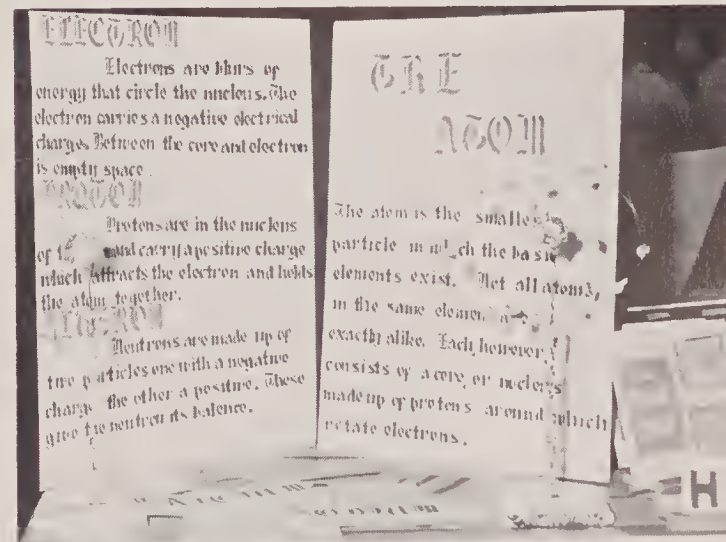 ELECTRON
Electrons are blurs of
energy that circle the nucleus. The
electron carries a negative electrical
charge. Between the core and electron
is empty space.
PROTON
Protons are in the nucleus
of and carry a positive charge
which attracts the electron and holds
the atom together.
NEUTRON
Neutrons are made up of
two particles one with a negative
charge the other a positive. These
give the neutron its balence.
THE
ATOM
The atom is the smallest
particle in which the basic
elements exist. Not all atoms,
in the same element are
exactly alike. Each however,
consists of a core or nucleus
made up of protons around which
rotate electrons.
H